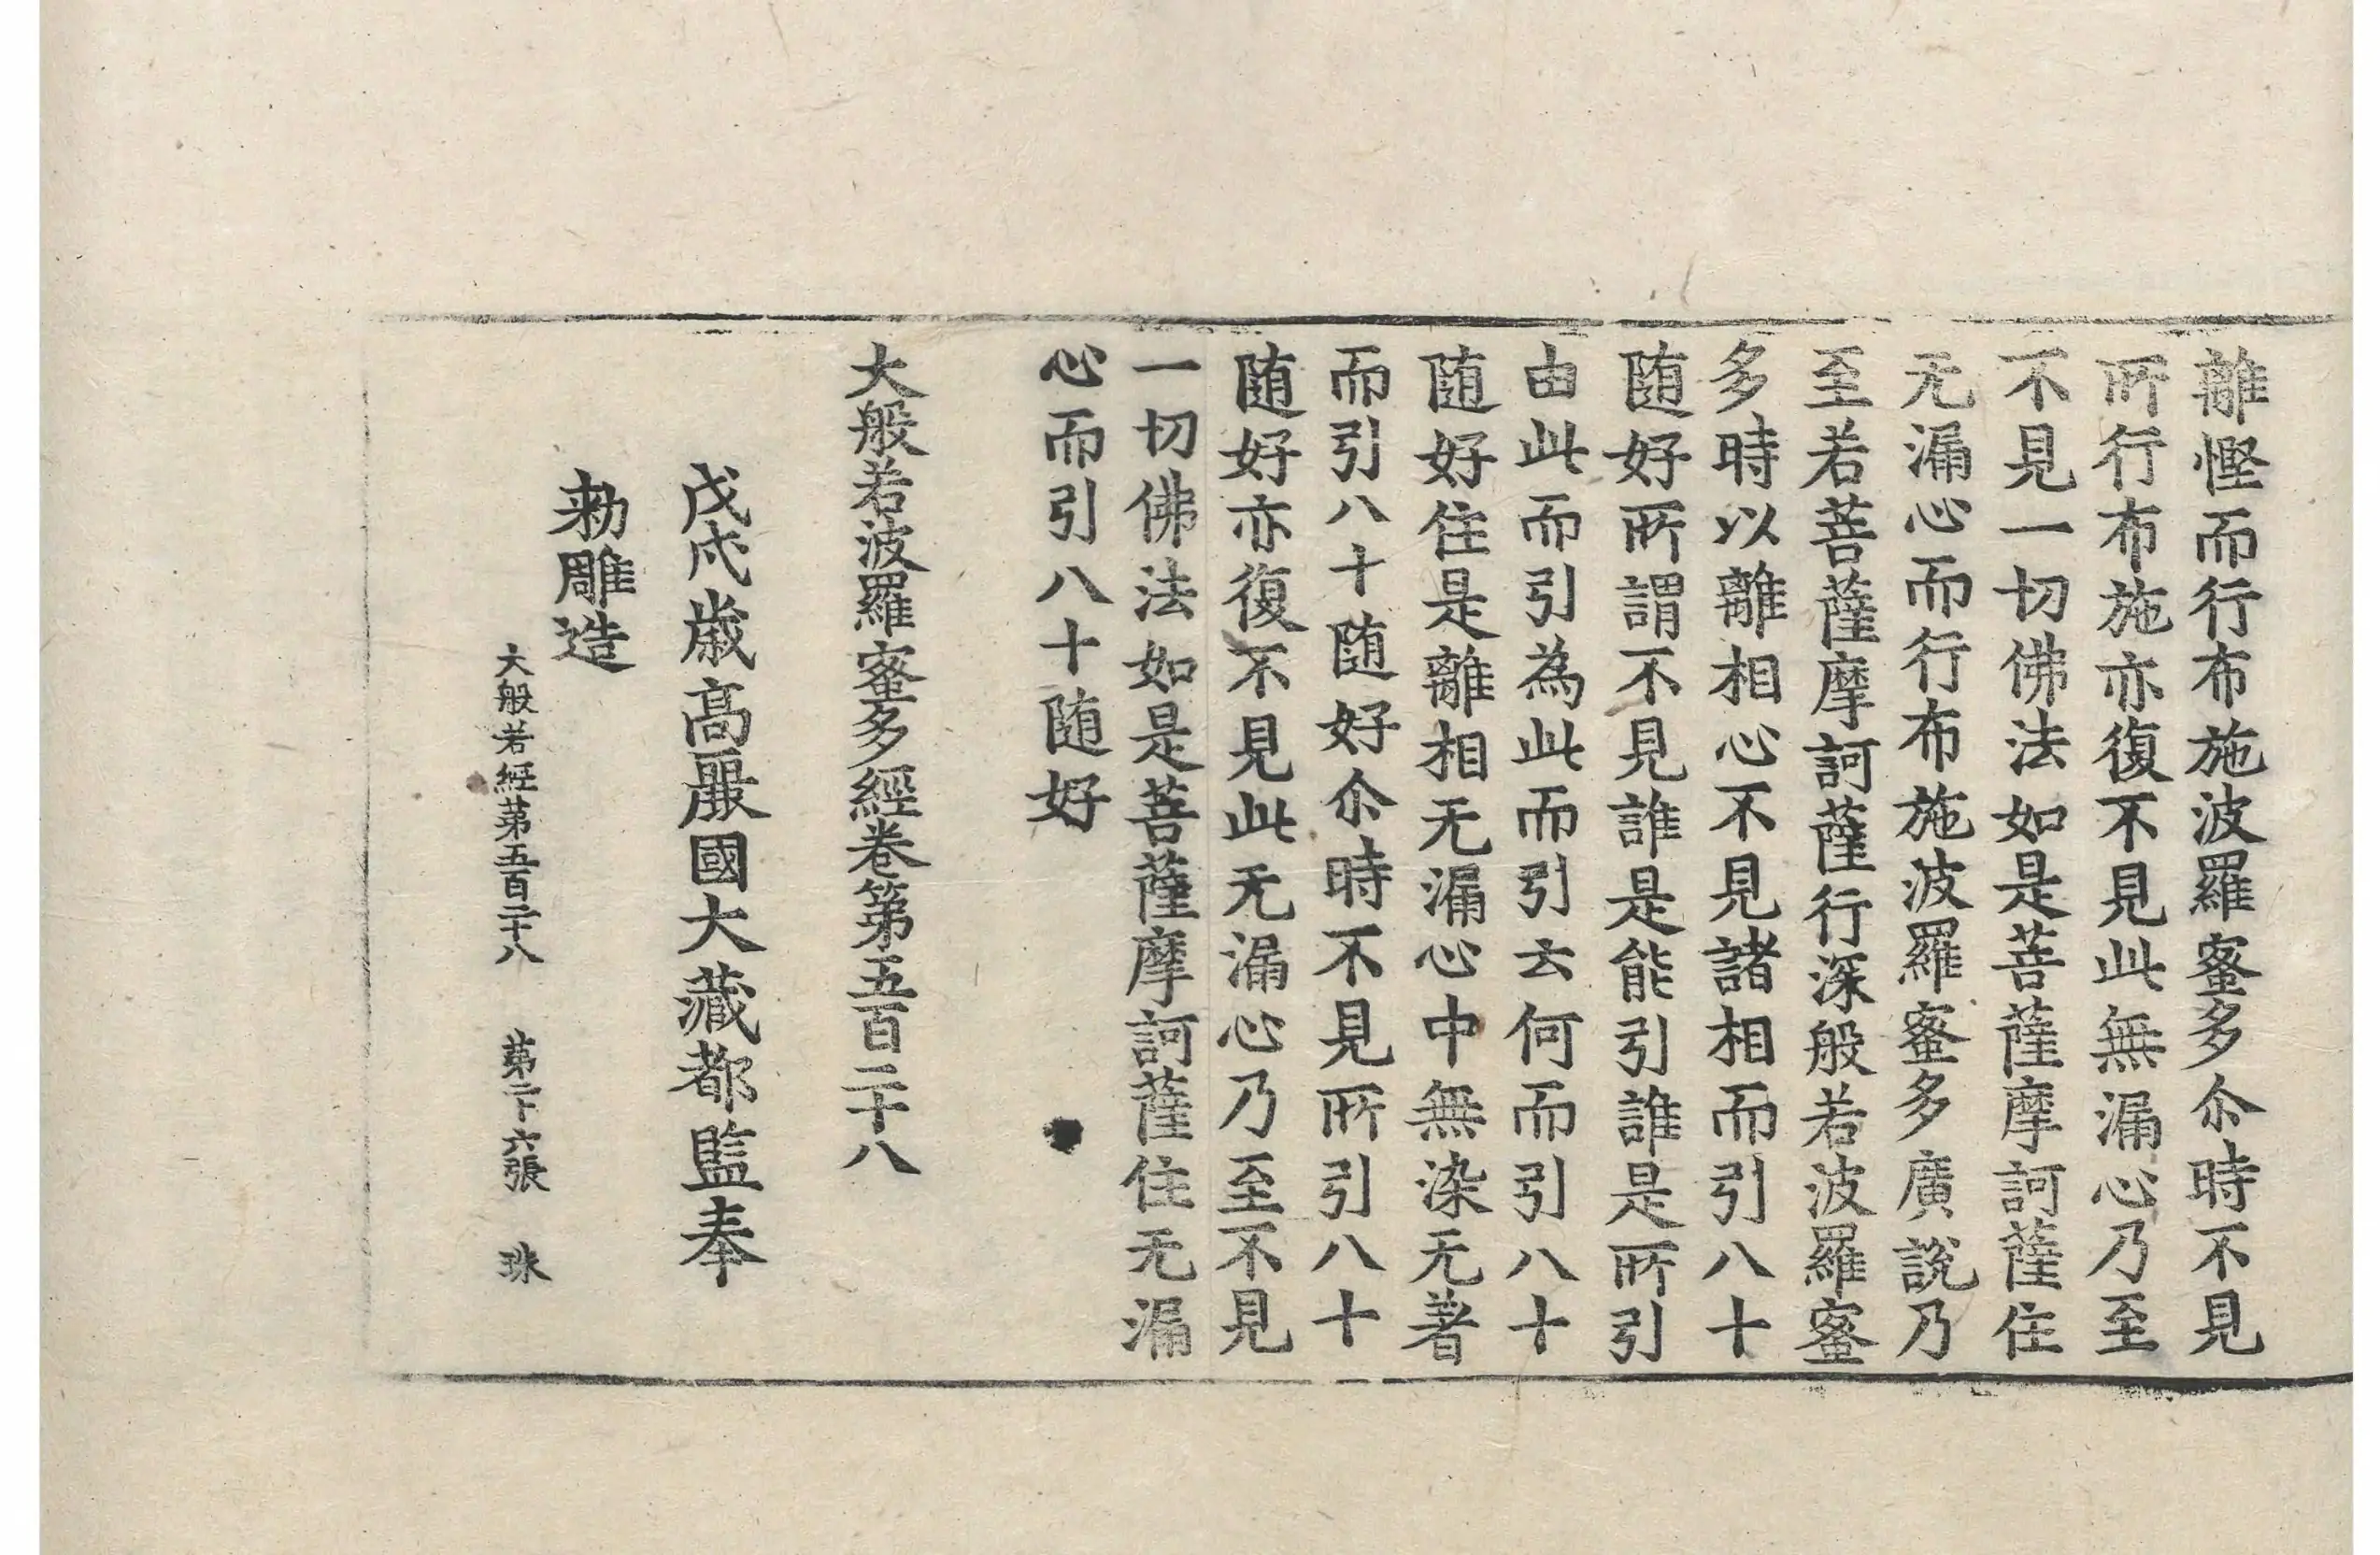 離慳而行布施波羅蜜多尒時不見
所行布施亦復不見此無漏心乃至
不見一切佛法如是菩薩摩訶薩住
无漏心而行布施波羅蜜多廣說乃
至若菩薩摩訶薩行深般若波羅蜜
多時以離相心不見諸相而引八十
随好所謂不見誰是能引誰是所引
由此而引為此而引云何而引八十
随好住是離相无漏心中無染无著
而引八十随好尒時不見所引八十
随好亦復不見此无漏心乃至不見
一切佛法如是菩薩摩訶薩住无漏
心而引八十随好
大般若波羅蜜多經卷第五百二十八
戊戌歲高麗國大藏都監奉
勅雕造
大般若經第五百二十八 第二十六張 珠